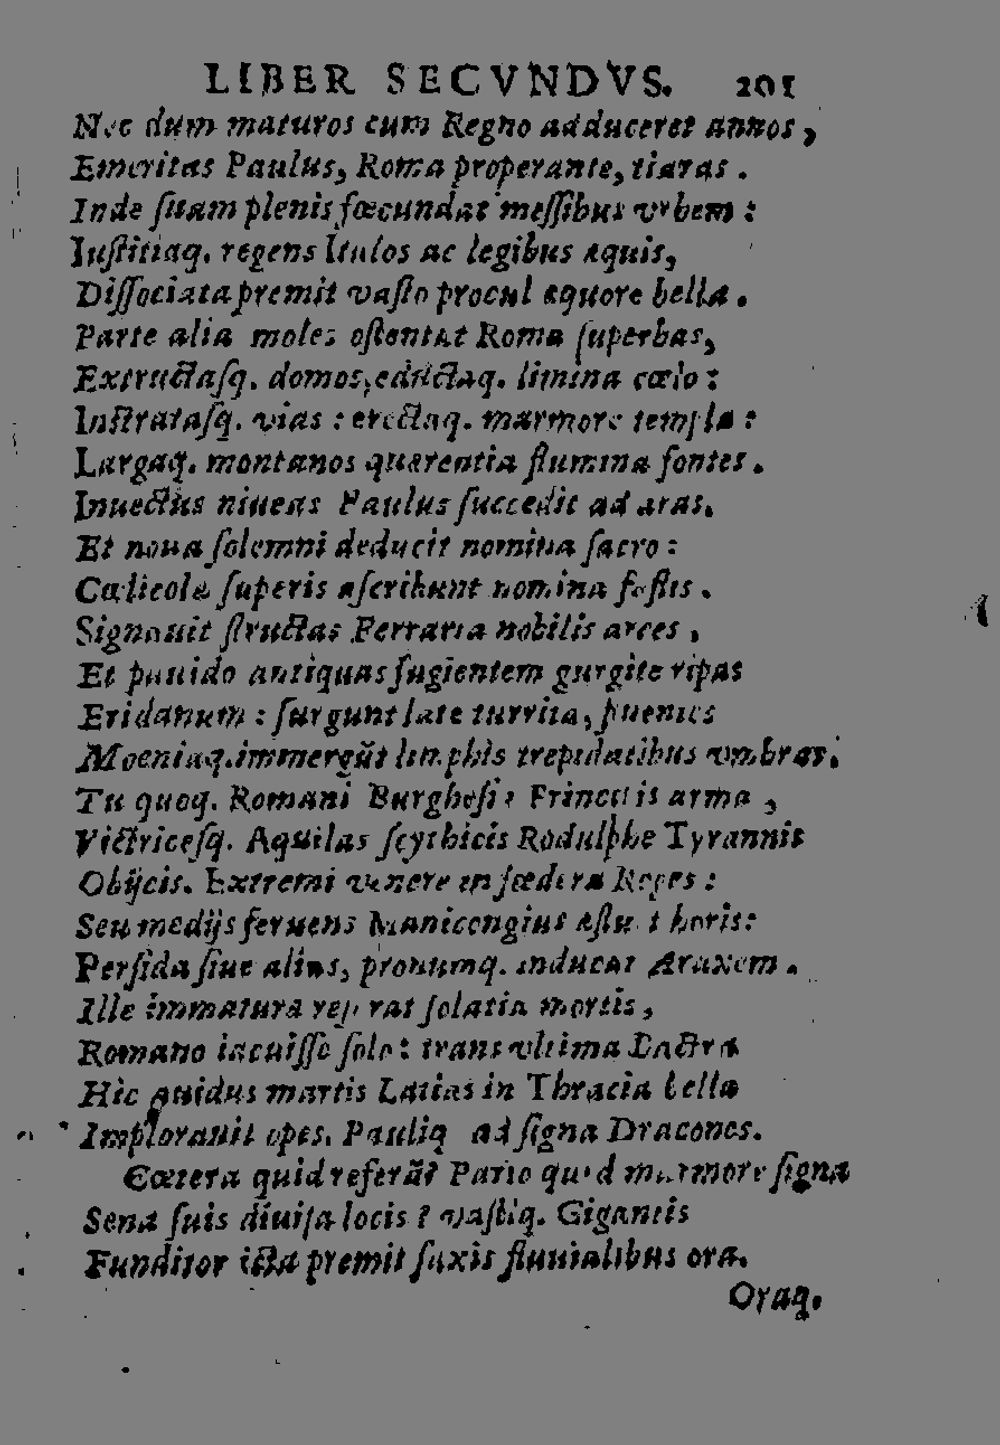 LIBER SECVNDVS. 201
Nec dum maturos cum Regno adduceret annos,
Emeritas Paulus, Roma properante, tiaras.
Inde ſuam plenis fœcundat meſſibus vrbem:
Iuſtitiaq. regens Italos ac legibus æquis,
Diſſociata premit vaſto procul æquore bella.
Parte alia moles oſtentat Roma ſuperbas,
Extructaſq. domos, eductaq. limina cœlo:
Inſtrataſq. vias: erectaq. marmore templa:
Largaq. montanos quærentia flumina fontes.
Inuectus niueas Paulus ſuccedit ad aras.
Et noua ſolemni deducit nomina ſacro:
Cælicolæ ſuperis aſcribunt nomina faſtis.
Signauit ſtructas Ferraria nobilis arces,
Et pauido antiquas fugientem gurgite ripas
Eridanum: ſurgunt late turrita, ſuenies
Moeniaq. immergũt limphis trepidatibus vmbras.
Tu quoq. Romani Burgheſi Principis arma,
Victriceſq. Aquilas ſcythicis Rodulphe Tyrannis
Obijcis. Extremi venere in fœdera Reges:
Seu medijs feruens Manicongius æſtu t horis:
Perſida ſiue alius, pronumq. inducat Araxem.
Ille immatura reportat ſolatia mortis,
Romano iacuiſſe ſolo: trans vltima Bactra
Hic auidus martis Latias in Thracia bella
Implorauit opes. Pauliq ad ſigna Dracones.
Cætera quid referãt Pario quid marmore ſigna
Sena ſuis diuiſa locis? vaſtiq. Gigantis
Funditor icta premit ſaxis fluuialibus ora.
Oraq.